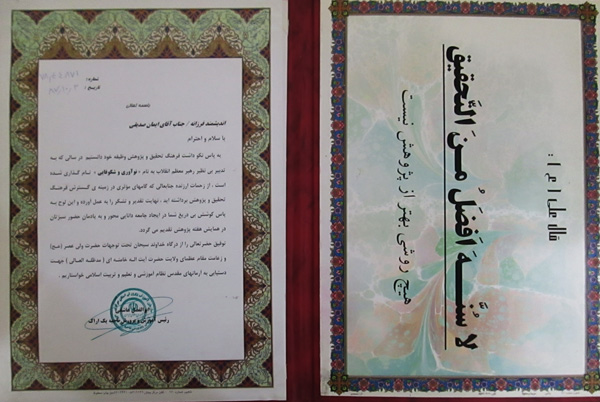 شماره:
تاریخ:
بسمه تعالی
اندیشمند فرزانه / جناب آقای ایمان صدیقی
با سلام و احترام
به پاس نکو داشت فرهنگ تحقیق و پژوهش وظیفه خود دانستیم در سالی که به
تدبیر بی نظیر رهبر معظم انقلاب به نام « نوآوری و شکوفایی » نام گذاری شده
است . از زحمات ارزنده جنابعالی که گامهای مؤثری در زمینه ی گسترش فرهنگ
تحقیق و پژوهش برداشته اید ، نهایت تقدیر و تشکر را به عمل آورده و این لوح به
پاس کوشش بی دریغ شما در ایجاد جامعه دانایی محور و به یادمان حضور سبزتان
در همایش هفته پژوهش تقدیم می گردد.
توفیق حضرتعالی را از درگاه خداوند سبحان تحت توجهات حضرت ولی عصر (عج)
و زعامت مقام عظمای ولایت حضرت آیت الله خامنه ای (مدظله العالی) جهت
دستیابی به آرمانهای مقدس نظام آموزشی و تعلیم و تربیت اسلامی خواستاریم .
رئیس آموزش و پرورش ناحیه یک اراک
قال علی (ع) :
لا سُنَّـة اَفضَلُ مـنَ التَّحقیق
هیچ روشی بهتر از پژوهش نیست